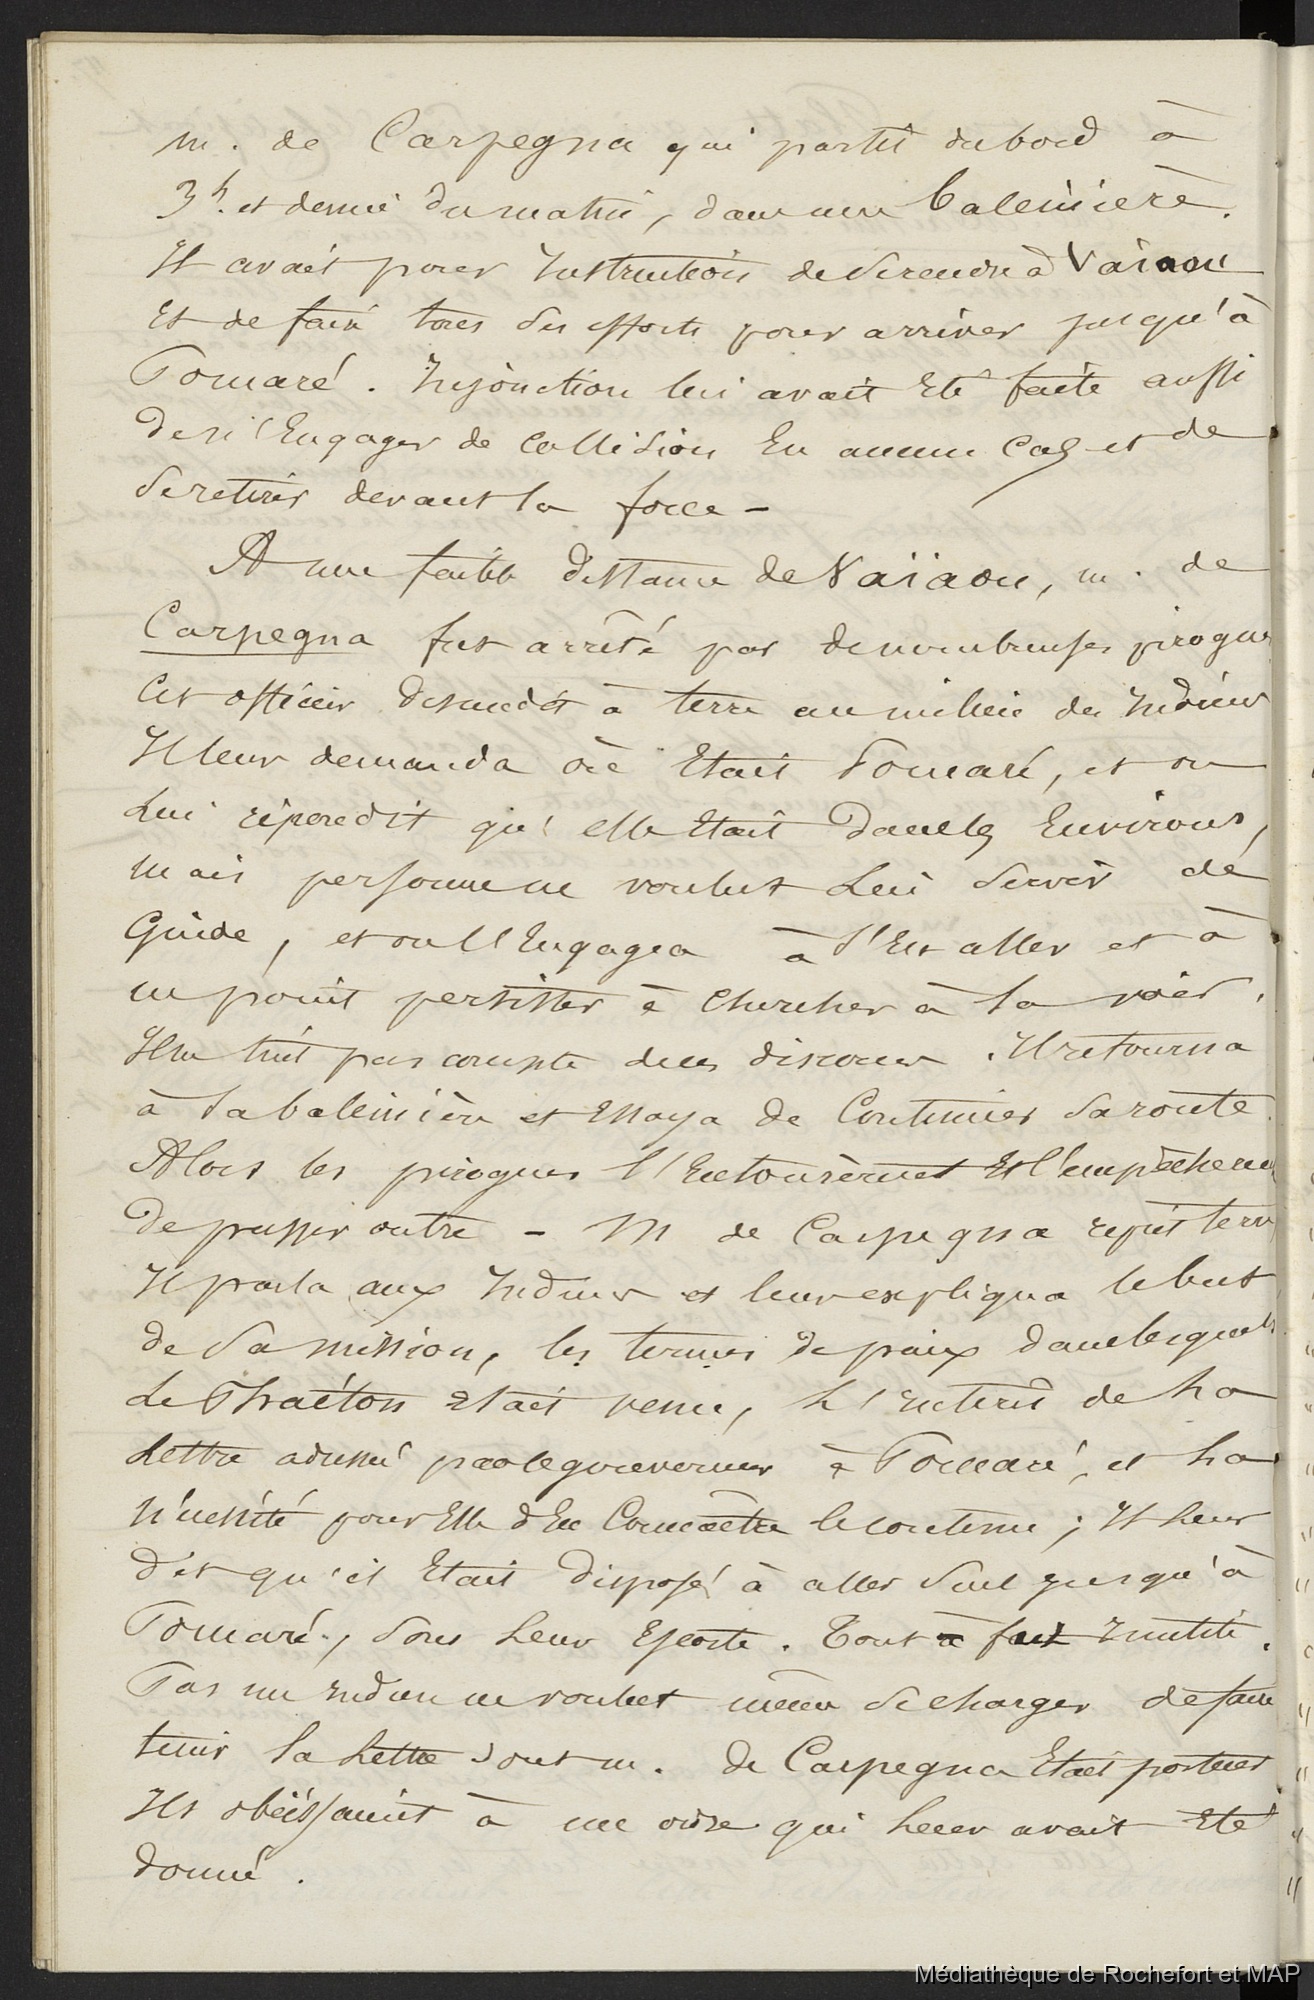 m. de Carpegna qui partit du bord à
3h. et demie du matin, dans une baleinière.
Il avait pour Instructions de se rendre à Vaïaou
Et de faire tous ses efforts pour arriver jusqu'à
Pomaré. Injonction lui avait Eté faite aussi
de n'Engager de Collision En aucun Cas et de
se retirer devant la force -
A une faible distance de Vaïaou, m. de
Carpegna fut arrêté par de nombreuses pirogues
Cet officier descendit à terre au milieu des Indiens
Il leur demanda où Etait Pomaré, et on
Lui répondit qu'elle Etait dans les Environs,
mais personne ne voulut Lui Servir de
Guide, et on l'Engagea à s'En aller et à
ne point persister à Chercher à la voir.
Il ne tint pas compte de ces discours. Il retourna
à sa baleinière et Essaya de Continuer sa route.
Alors les pirogues l'Entourèrent Et l'empêchèrent
de passer outre - M de Carpegna reprit terre
Il parla aux Indiens et leur expliqua le but
de sa mission, les termes de paix dans lesquels
Le Phaéton Etait venu, L'Intérêt de La
Lettre adressée par le gouverneur à Pomaré, et La
nécessité pour Elle d'En Connaître le contenu; Il Leur
dit qu'il Etait disposé à aller Seul jusqu'à
Pomaré, sous Leur Escorte. Tout à fait Inutile.
Pas un Indien ne voulut même se charger de faire
tenir la Lettre dont m. de Carpegna Etait porteur
Ils obéissaient à un ordre qui Leur avait Eté
donné.
Médiathèque de Rochefort et MAP